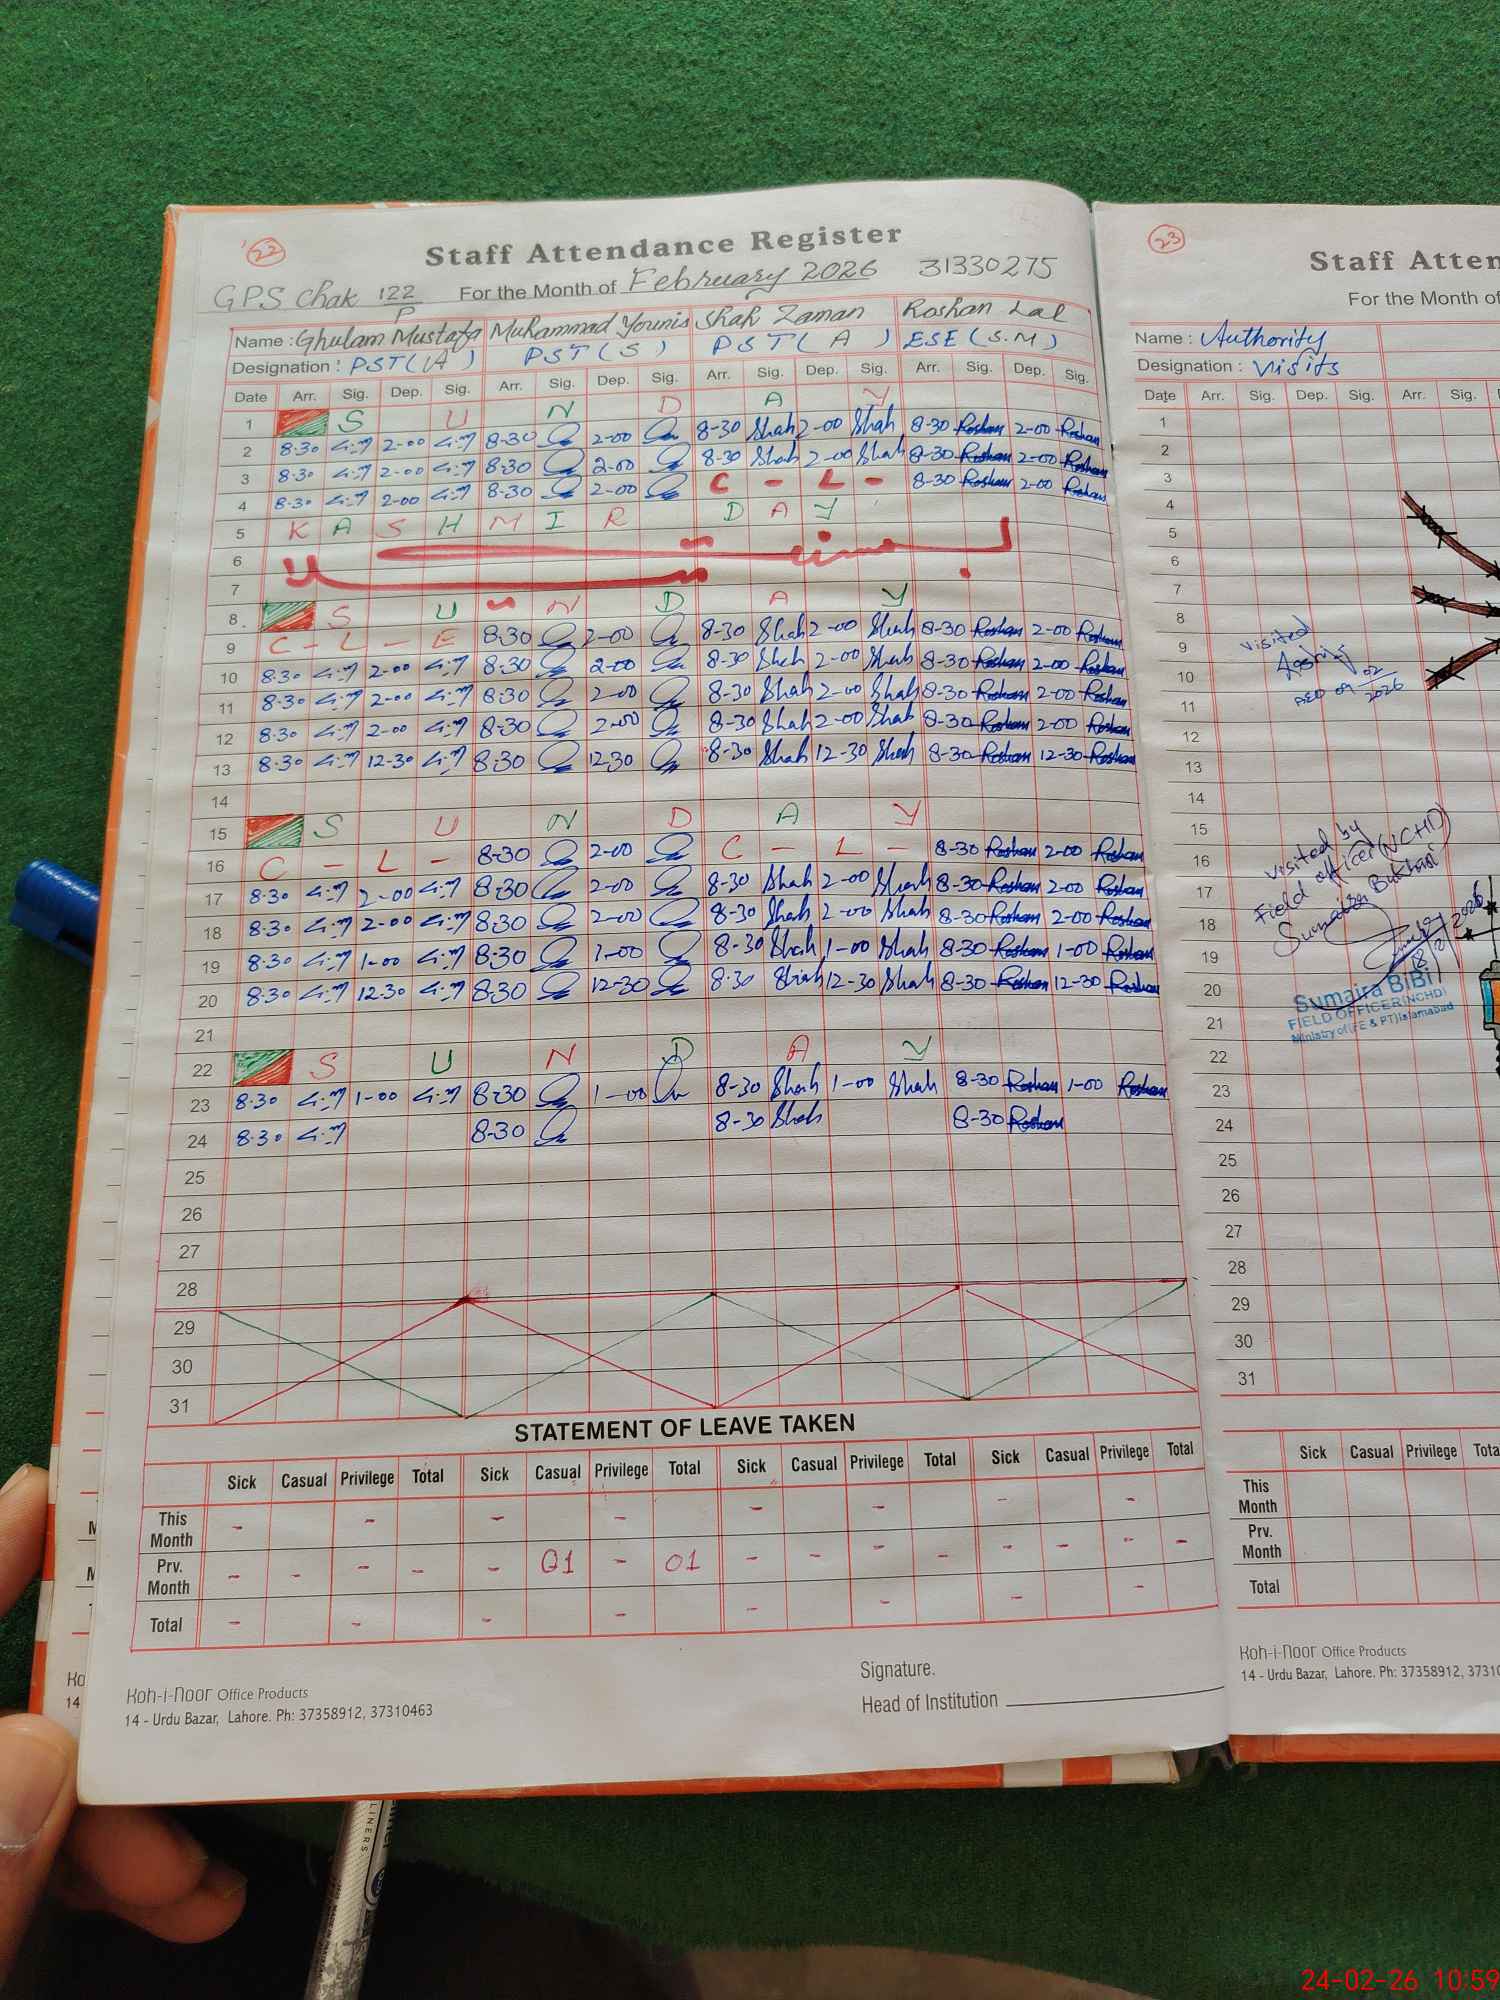 22
Staff Attendance Register
GPS Chak 122/P For the Month of February 2026 31330275
Name : Ghulam Mustafa Muhammad Younis Shah Zaman Roshan Lal
Designation : PST(A) PST(S) PST(A) ESE(S.M)
Date Arr. Sig. Dep. Sig. Arr. Sig. Dep. Sig. Arr. Sig. Dep. Sig. Arr. Sig. Dep. Sig.
1 S U N D A Y
2 8-30 2-00 8-30 2-00 8-30 Shah 2-00 Shah 8-30 Roshan 2-00 Roshan
3 8-30 2-00 8-30 2-00 8-30 Shah 2-00 Shah 8-30 Roshan 2-00 Roshan
4 8-30 2-00 8-30 2-00 C - L - 8-30 Roshan 2-00 Roshan
5 K A S H M I R D A Y
6
7
8 S U N D A Y
9 C - L - E 8-30 2-00 8-30 Shah 2-00 Shah 8-30 Roshan 2-00 Roshan
10 8-30 2-00 8-30 2-00 8-30 Shah 2-00 Shah 8-30 Roshan 2-00 Roshan
11 8-30 2-00 8-30 2-00 8-30 Shah 2-00 Shah 8-30 Roshan 2-00 Roshan
12 8-30 2-00 8-30 2-00 8-30 Shah 2-00 Shah 8-30 Roshan 2-00 Roshan
13 8-30 12-30 8-30 12-30 8-30 Shah 12-30 Shah 8-30 Roshan 12-30 Roshan
14
15 S U N D A Y
16 C - L - 8-30 2-00 C - L - 8-30 Roshan 2-00 Roshan
17 8-30 2-00 8-30 2-00 8-30 Shah 2-00 Shah 8-30 Roshan 2-00 Roshan
18 8-30 2-00 8-30 2-00 8-30 Shah 2-00 Shah 8-30 Roshan 2-00 Roshan
19 8-30 1-00 8-30 1-00 8-30 Shah 1-00 Shah 8-30 Roshan 1-00 Roshan
20 8-30 12-30 8-30 12-30 8-30 Shah 12-30 Shah 8-30 Roshan 12-30 Roshan
21
22 S U N D A Y
23 8-30 1-00 8-30 1-00 8-30 Shah 1-00 Shah 8-30 Roshan 1-00 Roshan
24 8-30 8-30 8-30 Shah 8-30 Roshan
25
26
27
28
29
30
31
STATEMENT OF LEAVE TAKEN
Sick Casual Privilege Total Sick Casual Privilege Total Sick Casual Privilege Total Sick Casual Privilege Total
This Month - - - - - - - -
Prv. Month - - - - - 01 - 01 - - - - - - - -
Total - - - - - - - -
Signature.
Head of Institution
Koh-i-Noor Office Products
14 - Urdu Bazar, Lahore. Ph: 37358912, 37310463
23
Staff Atten
For the Month of
Name : Authority
Designation : Visits
Date Arr. Sig. Dep. Sig. Arr. Sig.
1
2
3
4
5
6
7
8
9
10
11
12
13
14
15
16
17
18
19
20
21
22
23
24
25
26
27
28
29
30
31
visited
AEO 09 02 2026
visited by
Field officer (NCHD)
Sumaira Bukhari
18/2/2026
Sumaira BiBi
FIELD OFFICER(NCHD)
Ministry of (FE & PT) Islamabad
Sick Casual Privilege Tota
This Month
Prv. Month
Total
Koh-i-Noor Office Products
14 - Urdu Bazar, Lahore. Ph: 37358912, 3731
LINERS
24-02-26 10:59